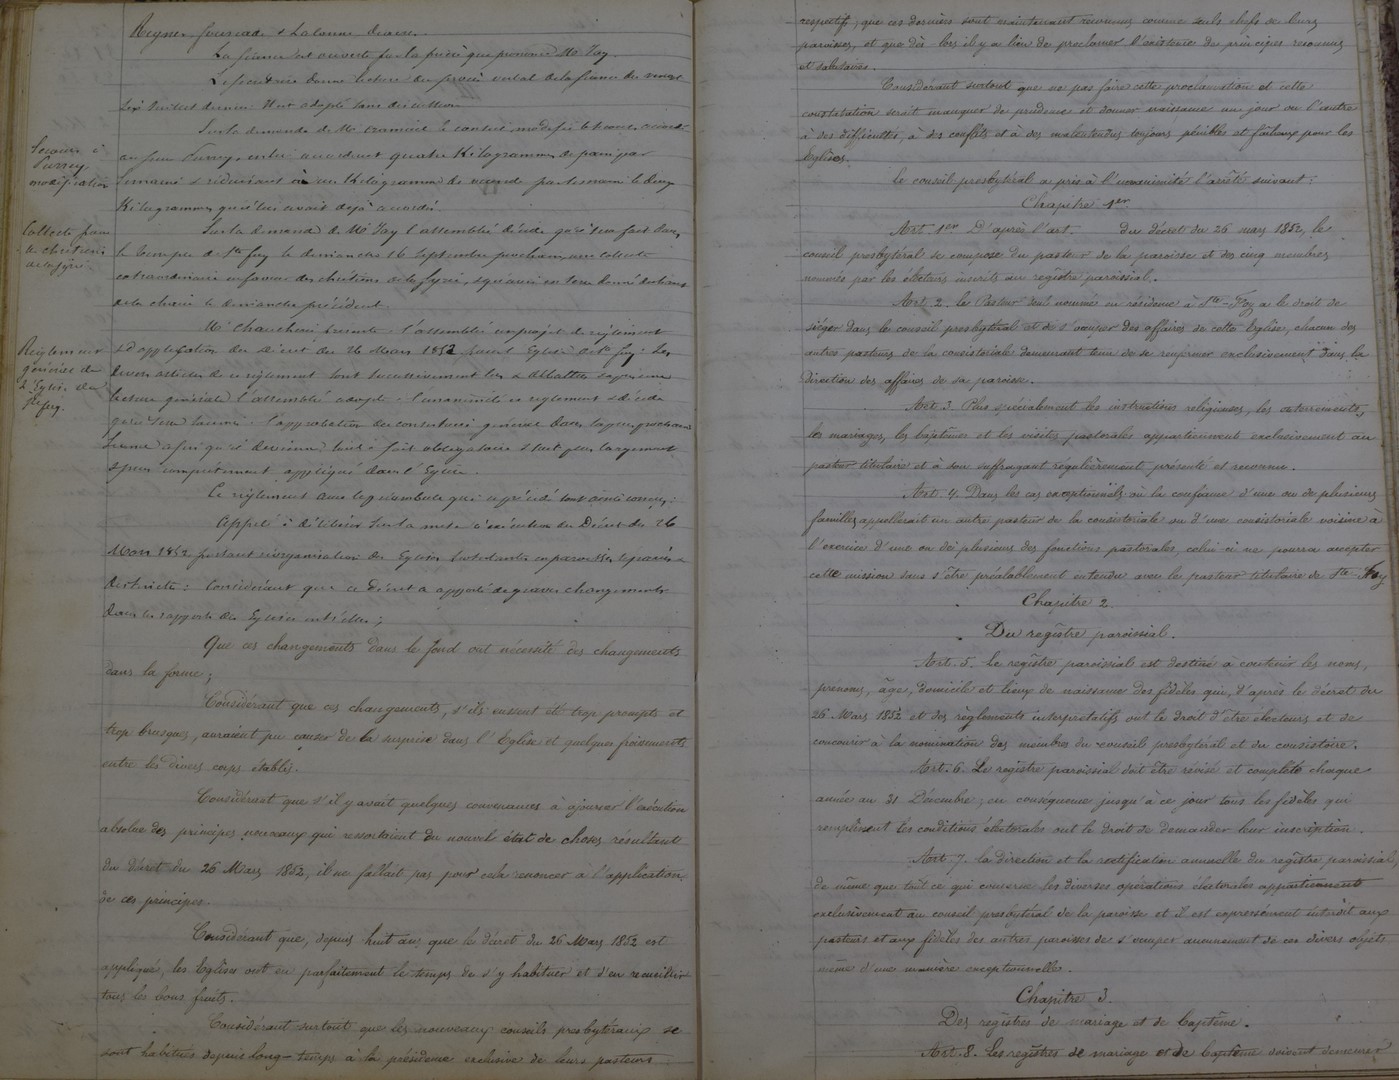 Reynier Jourcad & Lalanne diacre.
La séance est ouverte par la prière que prononce Mr Jay.
Le secrétaire donne lecture du procès verbal de la séance du vingt
six Juillet dernier. Il est adopté sans discussion.
Secours à
Purrey
modification
Sur la demande de Mr le conseil modifie le secours accordé
au sieur Purrey, en lui accordant quatre Kilogrammes de pain par
semaine & réduisant à un Kilogramme de viande par semaine le deux
Kilogrammes qu'il lui avait déjà accordé.
Collecte pour
les chrétiens
de la Syrie
Sur la demande de Mr Jay l'assemblée décide qu'il sera fait dans
le temple de Ste foy le dimanche 16 Septembre prochain, une collecte
extraordinaire en faveur des chrétiens de la Syrie, & qu'avis en sera donné du haut
de la chaire le dimanche précédent.
Règlement
général de
l'Eglise de
Ste foy.
Mr présente à l'assemblée un projet de règlement
& d'application du décret du 26 Mars 1852 pour l'Eglise de Ste foy. Les
divers articles de ce règlement sont successivement lus & débattus & après une
lecture générale l'assemblée adopte à l'unanimité ce règlement & décide
qu'il sera soumis à l'approbation du consistoire général dans la plus prochaine
séance afin qu'il devienne tout à fait obligatoire & soit plus largement
& plus complètement appliqué dans l'Eglise.
Ce règlement avec le préambule qui le précède sont ainsi conçus :
Appelé à délibérer sur la mise à exécution du Décret du 26
Mars 1852 portant réorganisation des Eglises Protestantes en paroisses séparées &
distinctes : Considérant que ce décret a apporté de graves changements
dans les rapports des Eglises entr'elles ;
Que ces changements dans le fond ont nécessité des changements
dans la forme ;
Considérant que ces changements, s'ils eussent été trop prompts et
trop brusques, auraient pu causer de la surprise dans l'Eglise et quelques froissements
entre les divers corps établis.
Considérant que s'il y avait quelques convenances à ajourner l'exécution
absolue des principes nouveaux qui ressortaient du nouvel état de choses résultant
du décret du 26 Mars 1852, il ne fallait pas pour cela renoncer à l'application
de ces principes.
Considérant que, depuis huit ans que le décret du 26 Mars 1852 est
appliqué, les Eglises ont eu parfaitement le temps de s'y habituer et d'en recueillir
tous les bons fruits.
Considérant surtout que les nouveaux conseils presbytéraux se
sont habitués depuis long-temps à la présidence exclusive de leurs pasteurs
respectifs ; que ces derniers sont maintenant reconnus comme seuls chefs de leurs
paroisses, et que dès-lors il y a lieu de proclamer l'existence des principes reconnus
et salutaires.
Considérant surtout que ne pas faire cette proclamation et cette
constatation serait manquer de prudence et donner naissance un jour ou l'autre
à des difficultés, à des conflits et à des malentendus toujours pénibles et fâcheux pour les
Eglises.
Le conseil presbytéral a pris à l'unanimité l'arrêté suivant :
Chapitre 1er
Art. 1er D'après l'art. du décret du 26 mars 1852, le
conseil presbytéral se compose du pasteur de la paroisse et des cinq membres
nommés par les électeurs inscrits au registre paroissial.
Art. 2. Le Pasteur seul nommé en résidence à Ste-Foy a le droit de
siéger dans le conseil presbytéral et de s'occuper des affaires de cette Eglise, chacun des
autres pasteurs de la consistoriale demeurant tenu de se renfermer exclusivement dans la
direction des affaires de sa paroisse.
Art. 3. Plus spécialement les instructions religieuses, les enterrements,
les mariages, les baptêmes et les visites pastorales appartiennent exclusivement au
pasteur titulaire et à son suffragant régulièrement présenté et reconnu.
Art. 4. Dans les cas exceptionnels où la confiance d'une ou de plusieurs
familles appellerait un autre pasteur de la consistoriale ou d'une consistoriale voisine à
l'exercice d'une ou de plusieurs des fonctions pastorales, celui-ci ne pourra accepter
cette mission sans s'être préalablement entendu avec le pasteur titulaire de Ste-Foy
Chapitre 2.
Du registre paroissial.
Art. 5. Le registre paroissial est destiné à contenir les noms,
prénoms, âge, domicile et lieux de naissance des fidèles qui, d'après le décret du
26 Mars 1852 et des règlements interprétatifs ont le droit d'être électeurs et de
concourir à la nomination des membres du conseil presbytéral et du consistoire.
Art. 6. Le registre paroissial doit être révisé et complété chaque
année au 31 Décembre ; en conséquence jusqu'à ce jour tous les fidèles qui
remplissent les conditions électorales ont le droit de demander leur inscription.
Art. 7. La direction et la rectification annuelle du registre paroissial,
de même que tout ce qui concerne les diverses opérations électorales appartiennent
exclusivement au conseil presbytéral de la paroisse et il est expressément interdit aux
pasteurs et aux fidèles des autres paroisses de s'occuper aucunement de ces divers objets
même d'une manière exceptionnelle.
Chapitre 3.
Des registres de mariage et de baptême.
Art. 8. Les registres de mariage et de baptême doivent demeurer